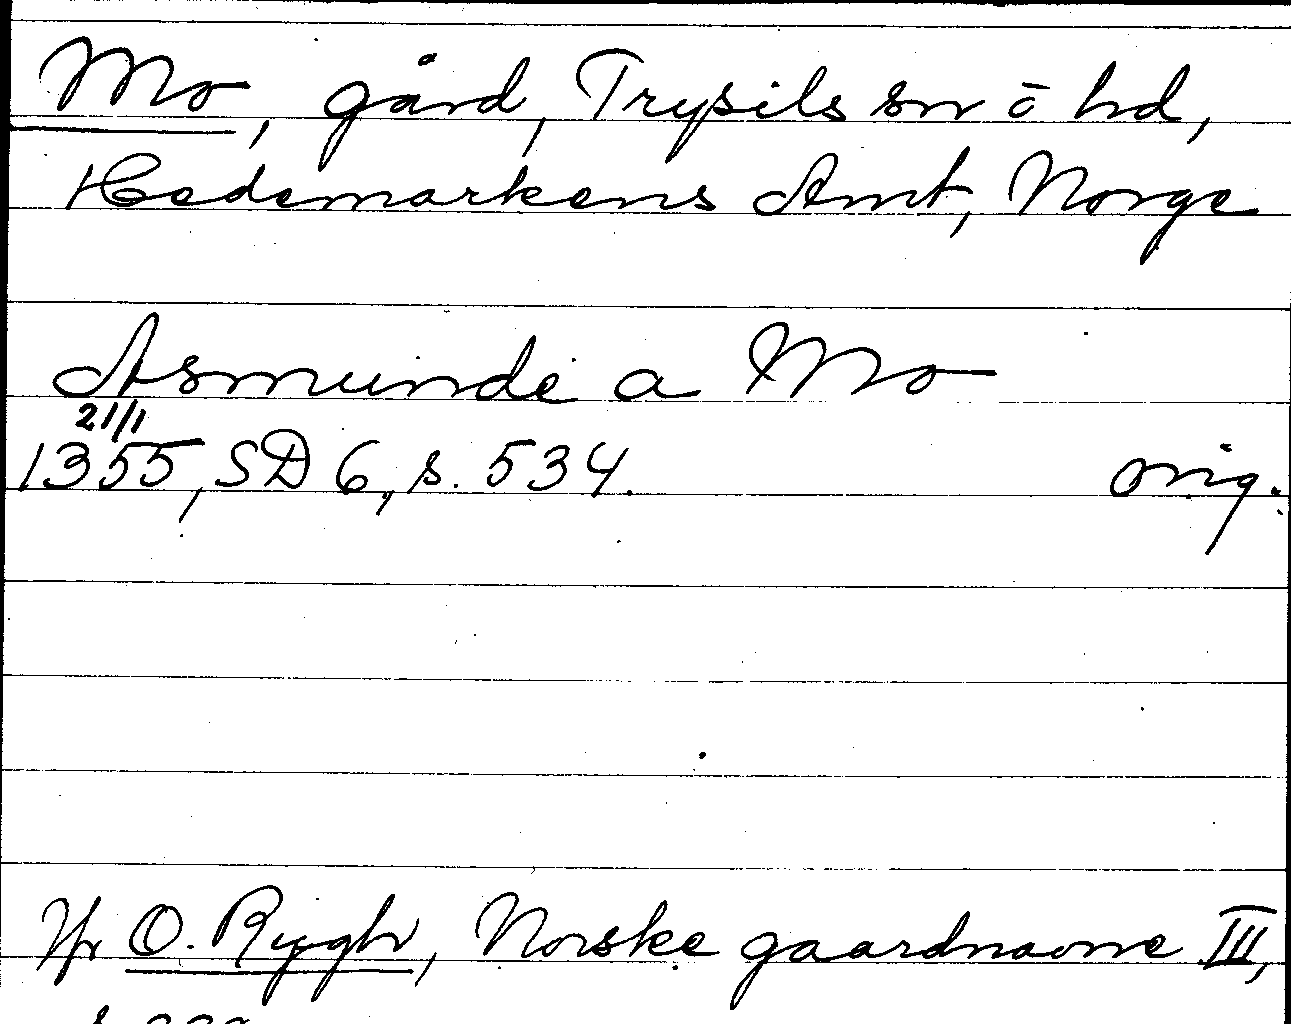 Mo, gård, Trysils sn o hd,
Hedemarkens Amt, Norge
Asmunde a Mo
21/1
1355, SD 6, s. 534. orig.
Jfr O. Rygh, Norske gaardnavne III,